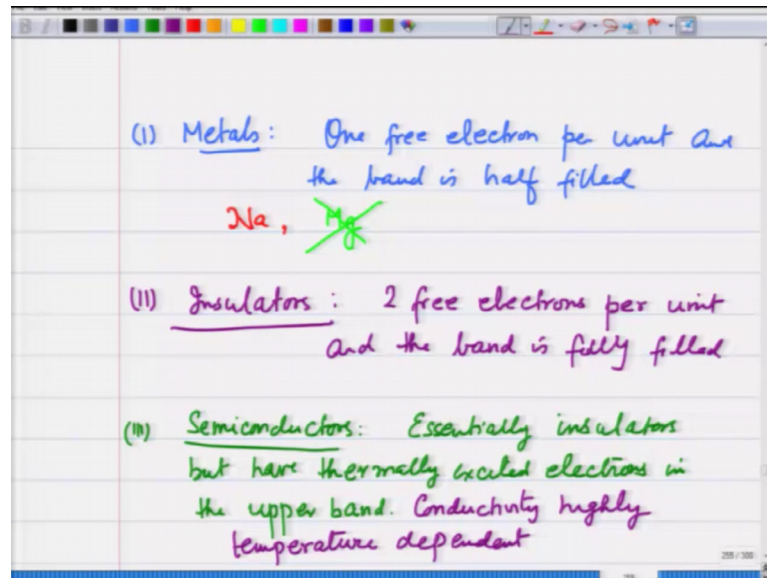 (I) Metals: One free electron per unit and
the band is half filled
Na, Mg
(II) Insulators: 2 free electrons per unit
and the band is fully filled
(III) Semiconductors: Essentially insulators
but have thermally excited electrons in
the upper band. Conductivity highly
temperature dependent
255 / 300